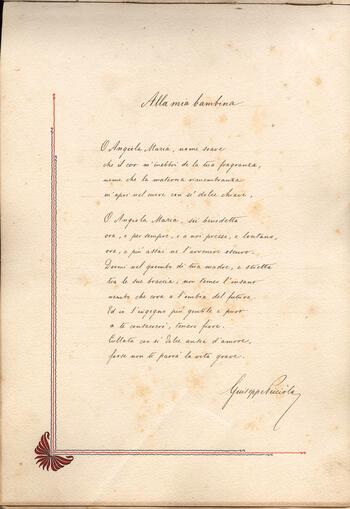 Alla mia bambina
O Angiola Maria, nome soave
che 'l cor m'inebbri de la tua fragranza,
nome che la materna rimembranza
m'aprì nel core con sì dolce chiave,
O Angiola Maria, sii benedetta
ora, e per sempre, e a noi presso, e lontano,
ora, e più assai ne l'avvenire oscuro.
Dormi nel grembo di tua madre, e stretta
tra le sue braccia, non temer l'insano
nembo che cova a l'ombra del futuro
Ed io l'ingegno più gentile e puro
a te consacrerò, tenero fiore.
Cullata con sì dolce ansia d'amore,
forse non ti parrà la vita grave.
Giuseppe Picciola